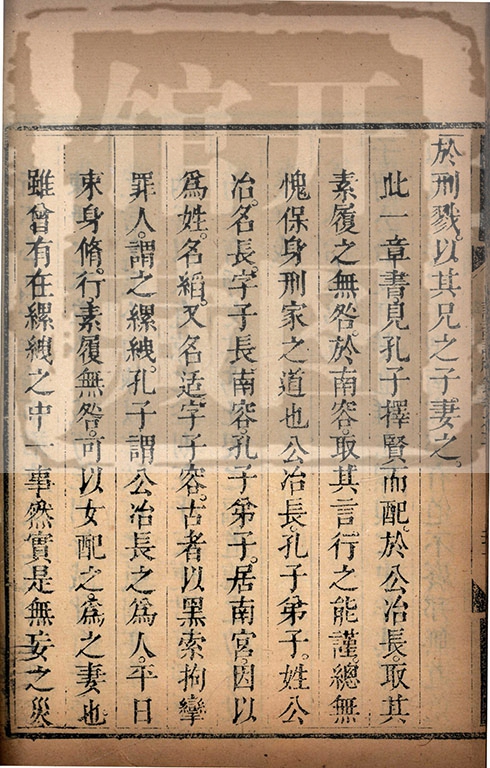 於刑戮。以其兄之子。妻之。
此一章書見孔子擇賢而配。於公冶長。取其
素履之無咎。於南容。取其言行之能謹。總無
愧保身刑家之道也公冶長。孔子弟子。姓公
冶。名長。字子長南容。孔子弟子。居南宮。因以
爲姓。名縚。又名适字子容。古者以黑索拘攣
罪人。謂之縲絏。孔子謂公冶長之爲人。平日
束身脩行。素履無咎。可以女配之。爲之妻也
雖曾有在縲絏之中一事。然實是無妄之災